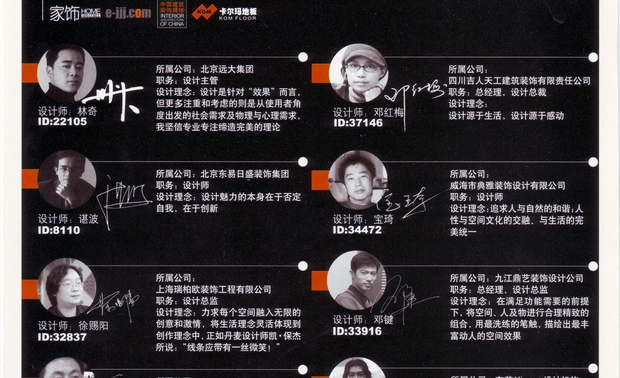 家饰 HOME DECORATION e-jjj.com 中国建筑装饰装修 INTERIOR OF CHINA KOM 卡尔玛地板 KOM FLOOR
设计师：林奇
ID:22105
所属公司：北京远大集团
职务：设计主管
设计理念：设计是针对“效果”而言，
但更多注重和考虑的则是从使用者角
度出发的社会需求及物理与心理需求，
我坚信专业专注缔造完美的理论
设计师：邓红梅
ID:37146
所属公司：
四川吉人天工建筑装饰有限责任公司
职务：总经理，设计总裁
设计理念：
设计源于生活，设计源于感动
设计师：谌波
ID:8110
所属公司：北京东易日盛装饰集团
职务：设计师
设计理念：设计魅力的本身在于否定
自我，在于创新
设计师：宝琦
ID:34472
所属公司：
威海市典雅装饰设计有限公司
职务：设计师
设计理念:追求人与自然的和谐；人
性与空间文化的交融、与生活的完
美统一
设计师：徐赐阳
ID:32837
所属公司：
上海瑞柏欧装饰工程有限公司
职务：设计总监
设计理念：力求每个空间融入无限的
创意和激情，将生活理念灵活体现到
创作理念中，正如丹麦设计师凯·保杰
所说：“线条应带有一丝微笑！”
设计师：邓键
ID:33916
所属公司：九江鼎艺装饰设计公司
职务：总经理、设计总监
设计理念：在满足功能需要的前提
下，将空间、人及物进行合理精致的
组合，用最洗练的笔触，描绘出最丰
富动人的空间效果